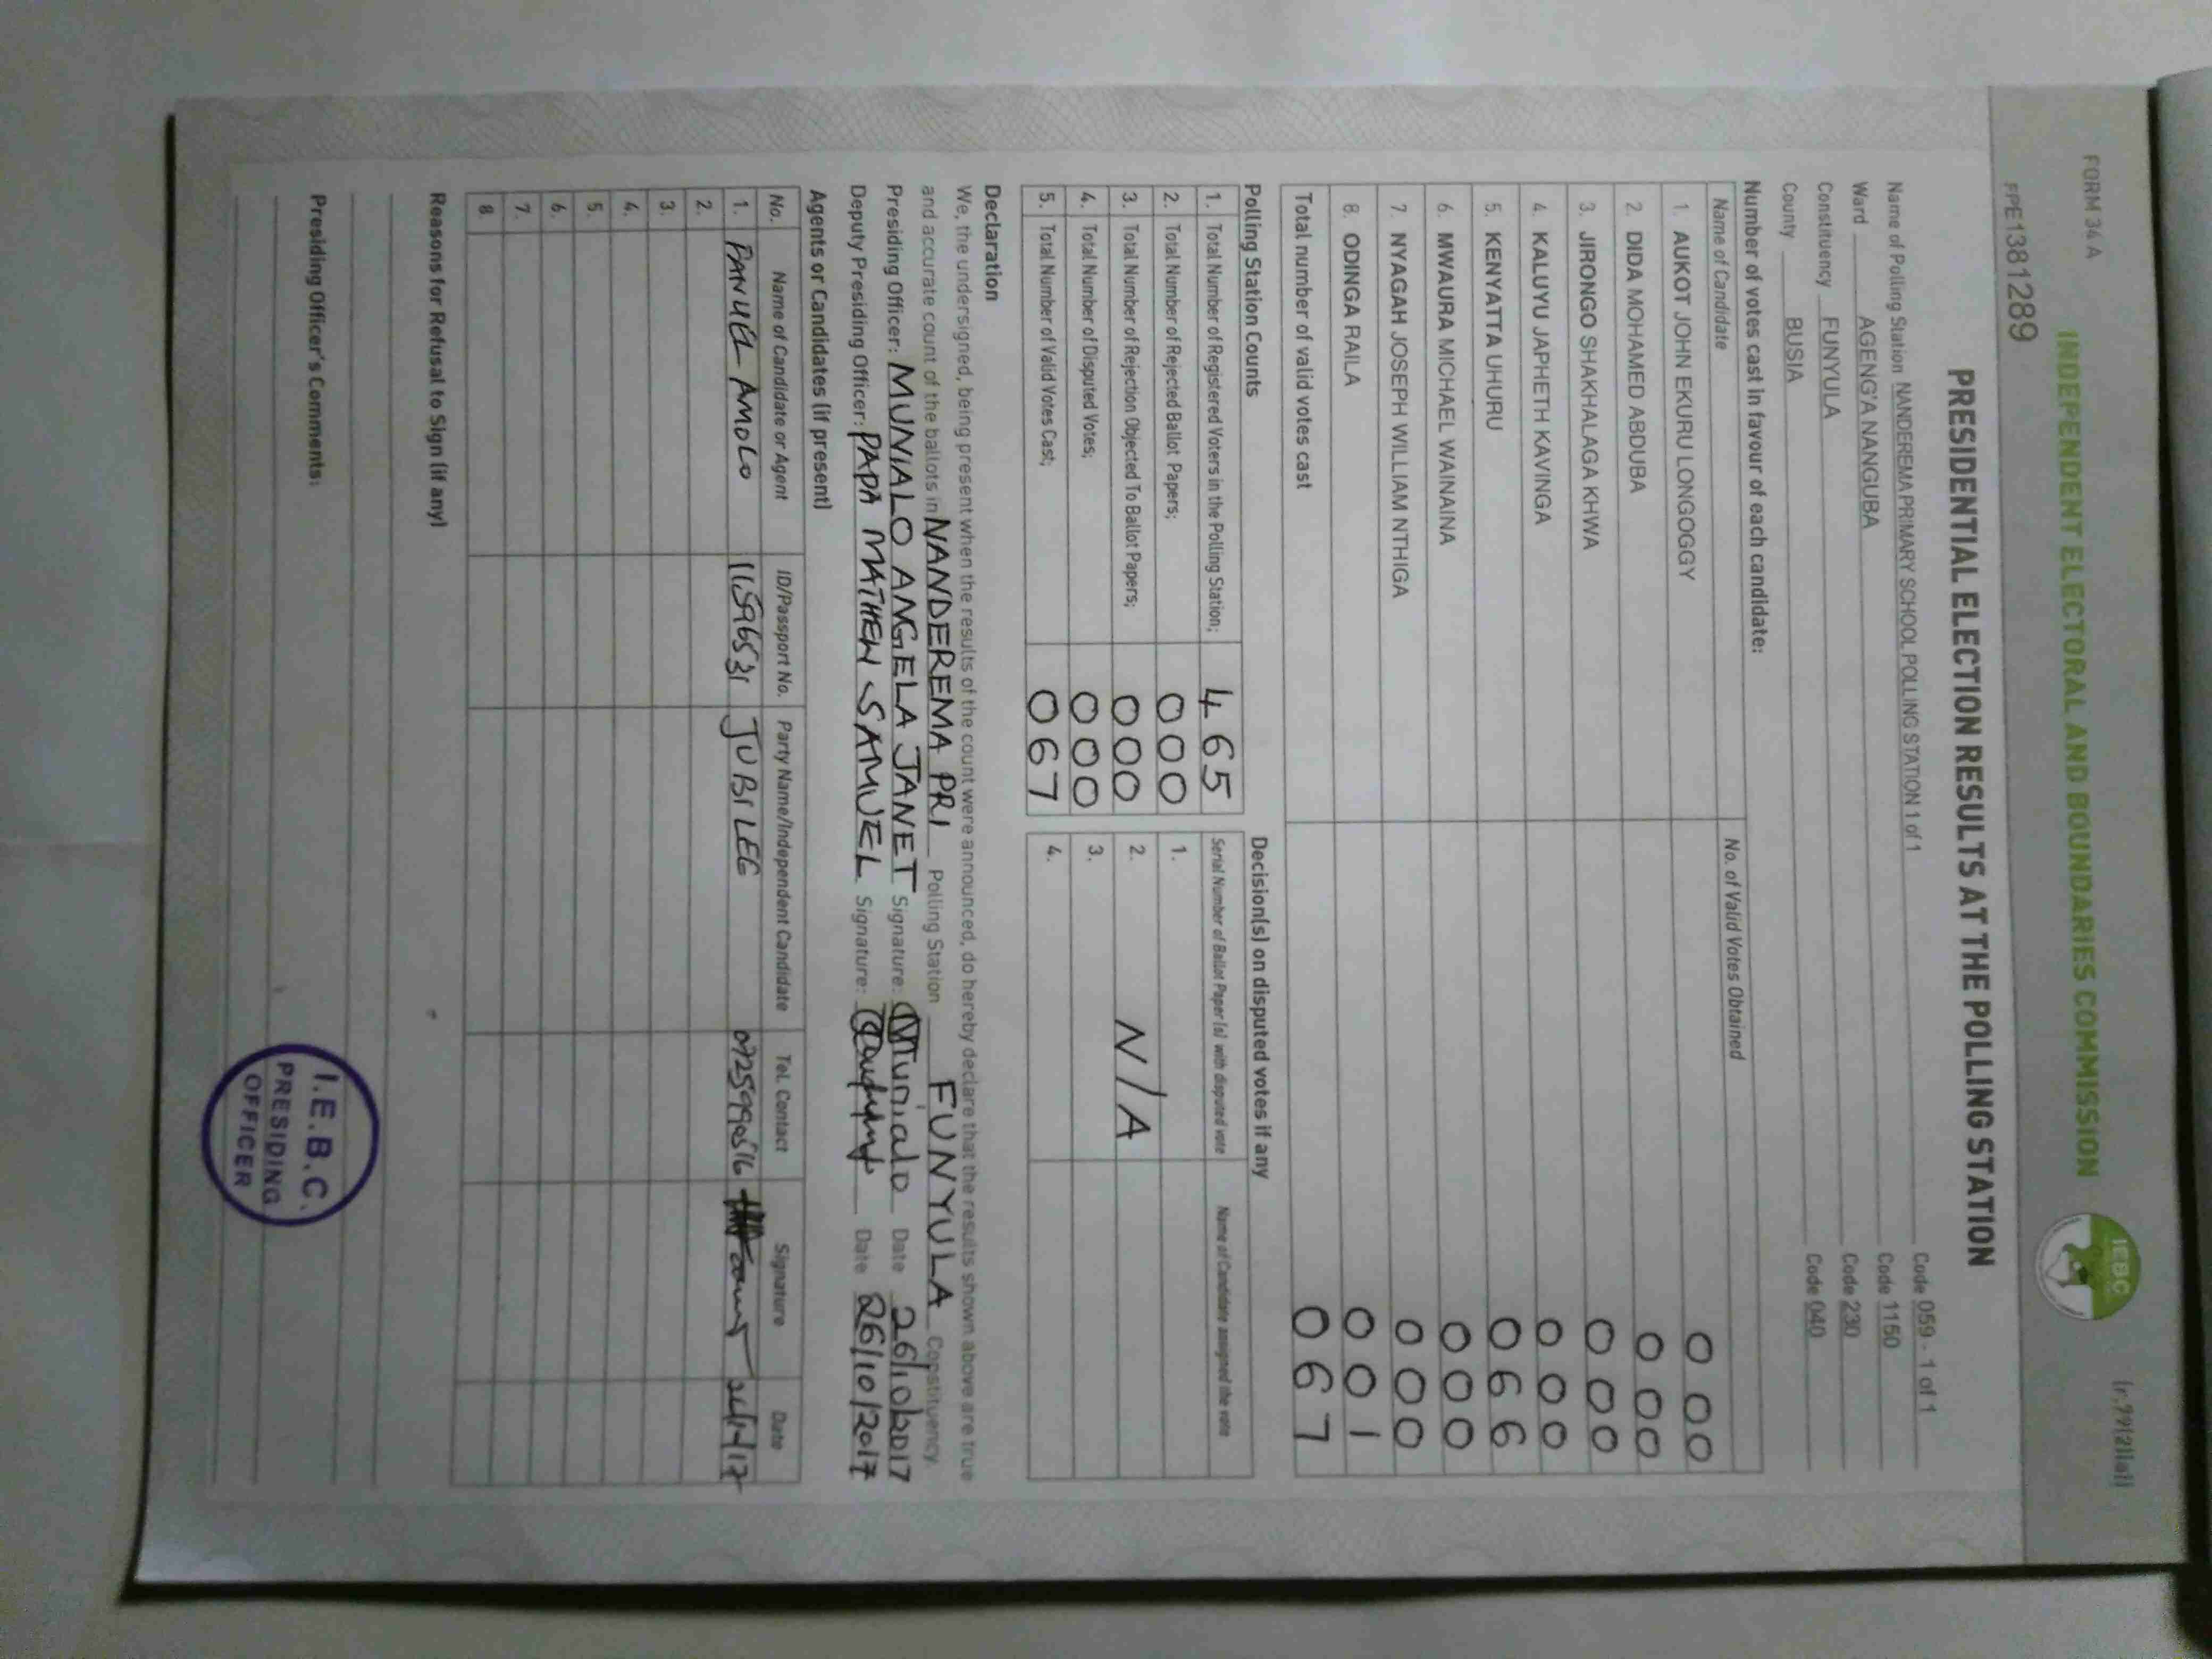 FORM 34 A
(r.79(2)(a))
INDEPENDENT ELECTORAL AND BOUNDARIES COMMISSION
IEBC
PPE1381289
PRESIDENTIAL ELECTION RESULTS AT THE POLLING STATION
Name of Polling Station NANDEREMA PRIMARY SCHOOL POLLING STATION 1 of 1 Code 059 - 1 of 1
Ward AGENG'A NANGUBA Code 1150
Constituency FUNYULA Code 230
County BUSIA Code 040
Number of votes cast in favour of each candidate:
Name of Candidate No. of Valid Votes Obtained
1. AUKOT JOHN EKURU LONGOGGY 000
2. DIDA MOHAMED ABDUBA 000
3. JIRONGO SHAKHALAGA KHWA 000
4. KALUYU JAPHETH KAVINGA 000
5. KENYATTA UHURU 066
6. MWAURA MICHAEL WAINAINA 000
7. NYAGAH JOSEPH WILLIAM NTHIGA 000
8. ODINGA RAILA 001
Total number of valid votes cast 067
Polling Station Counts Decision(s) on disputed votes if any
1. Total Number of Registered Voters in the Polling Station; 465 Serial Number of Ballot Paper (s) with disputed vote Name of Candidate assigned the vote
2. Total Number of Rejected Ballot Papers; 000 1.
3. Total Number of Rejection Objected To Ballot Papers; 000 2. N/A
4. Total Number of Disputed Votes; 000 3.
5. Total Number of Valid Votes Cast; 067 4.
Declaration
We, the undersigned, being present when the results of the count were announced, do hereby declare that the results shown above are true
and accurate count of the ballots in NANDEREMA PRI Polling Station FUNYULA Constituency.
Presiding Officer: MUNIALO ANGELA JANET Signature: Munialo Date 26/10/2017
Deputy Presiding Officer: PAPA MATHEW SAMUEL Signature: Date 26/10/2017
Agents or Candidates (if present)
No. Name of Candidate or Agent ID/Passport No. Party Name/Independent Candidate Tel. Contact Signature Date
1. PANUEL AMOLO 11596531 JUBILEE 0725990516
2.
3.
4.
5.
6.
7.
8.
Reasons for Refusal to Sign (if any)
Presiding Officer's Comments:
I.E.B.C.
PRESIDING
OFFICER